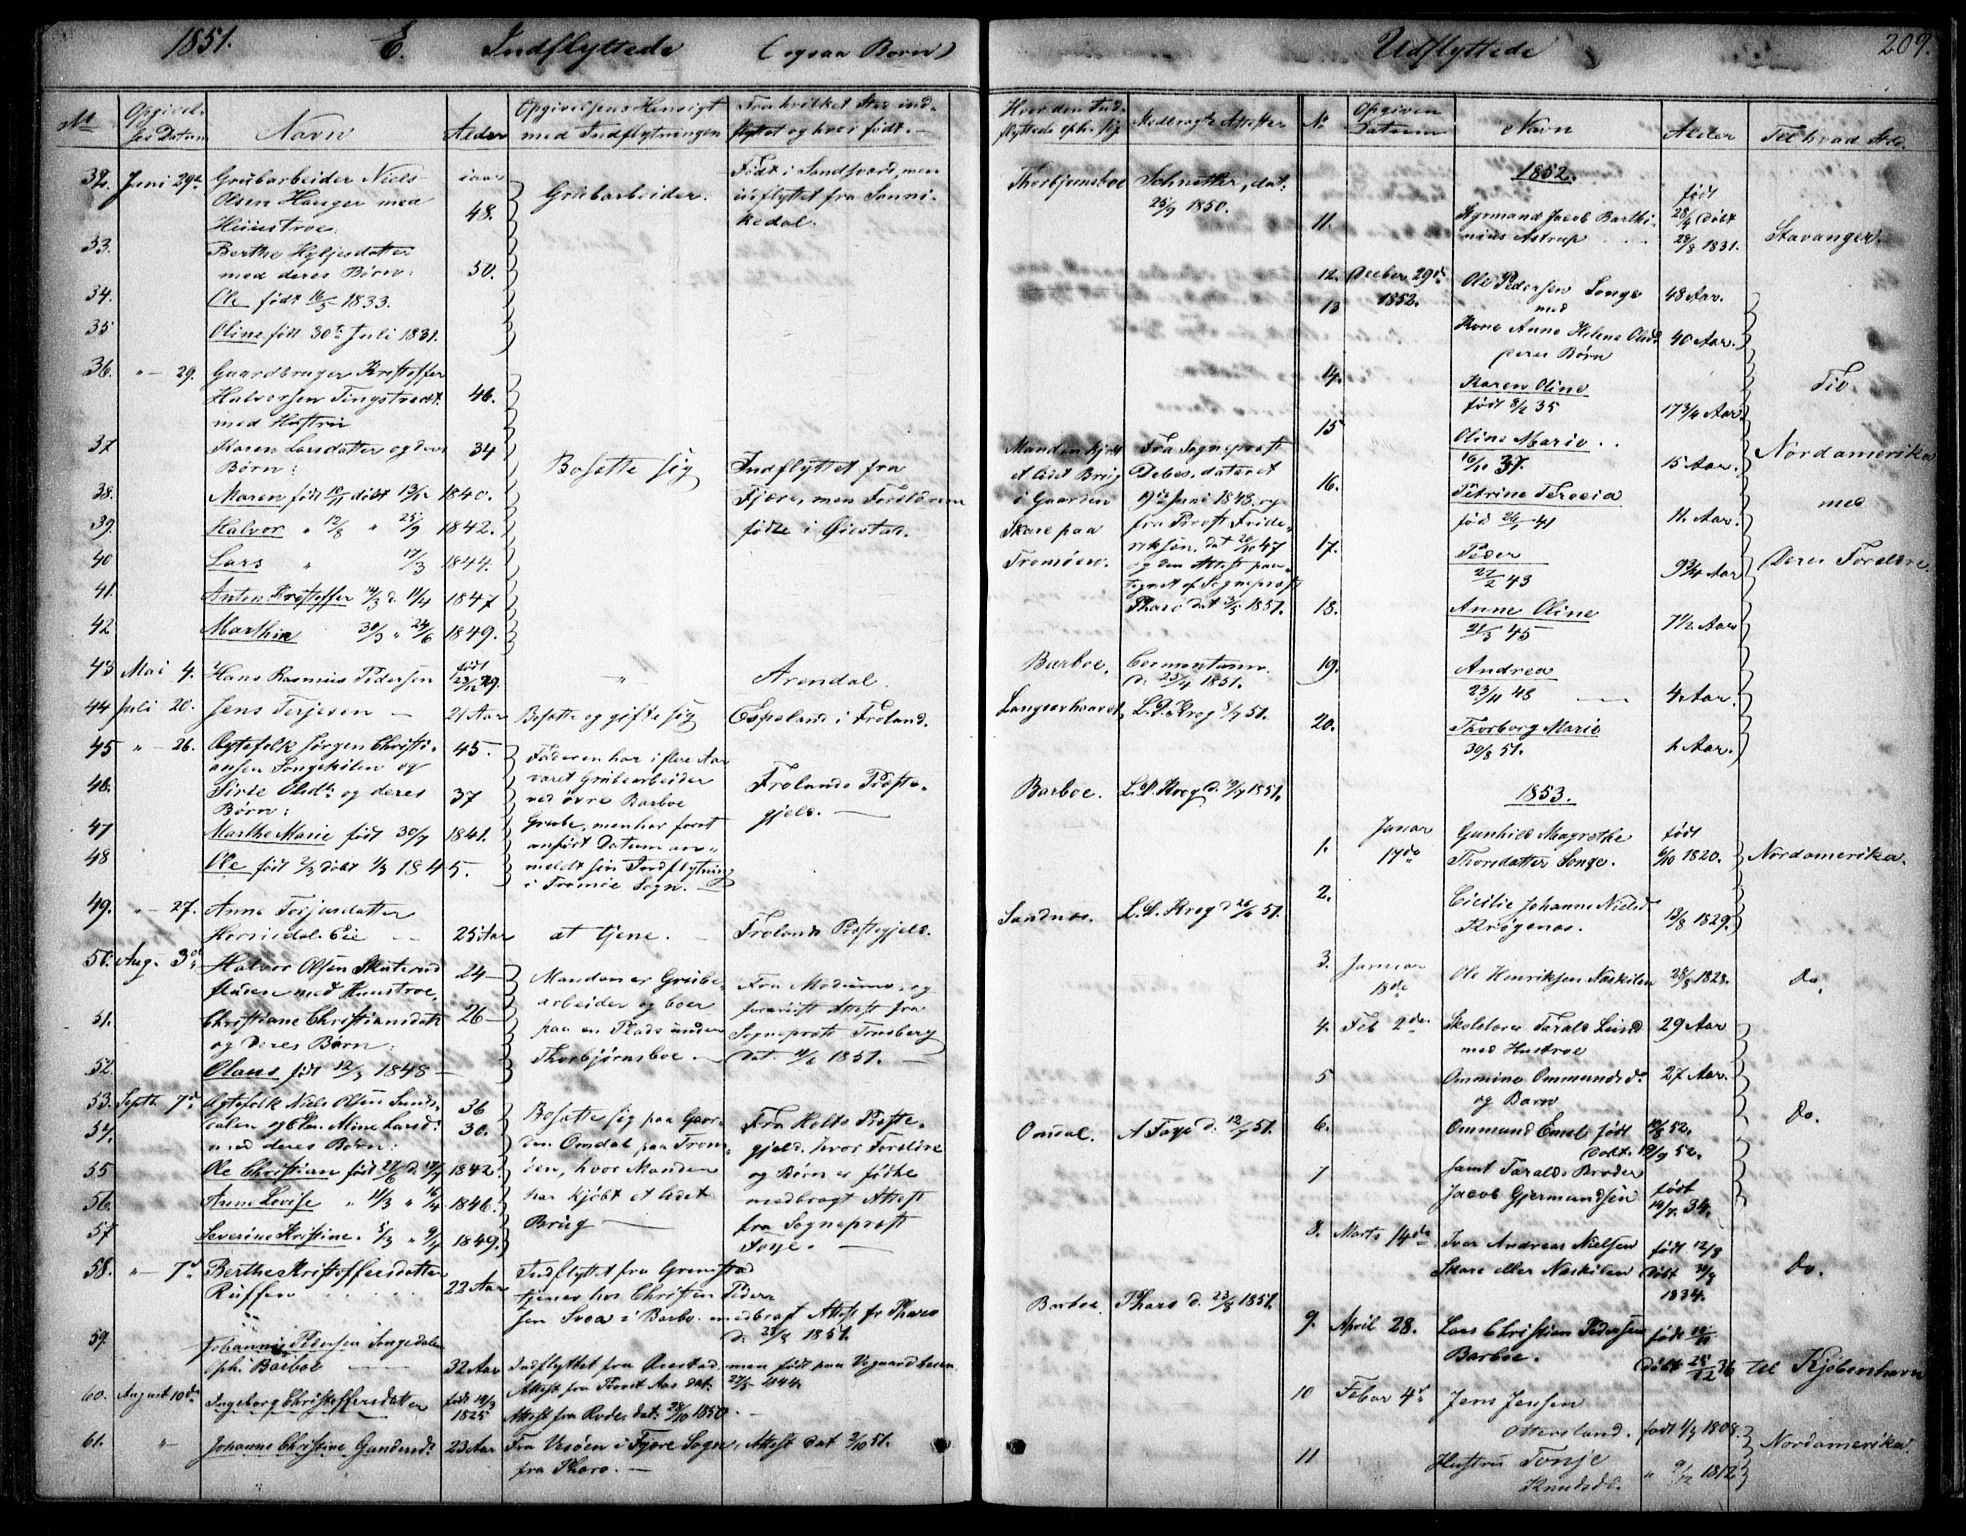 1851. E. Indflyttede (ogsaa Børn)
No
Opgivel-
ses Datum
Navn
Alder
Opgivelsens Hensigt
med Indflytningen
Fra hvilket Sted ind-
flyttet og hvor født.
Hvor den Ind-
flyttede oph. sig
Medbragte Attester
32. Juni 29de Grubarbeider Niels
Olsen Hauger med
Hüüstroe
iaar
48.
Grubarbeider.
Født i Sandsværd, men
indflyttet fra Sanni-
kedal.
Thorbjørnsboe
Schnetler, dat.
25/9 1850.
33. Berthe
med deres Børn:
50.
34. Ole født 16/5 1833.
35 Oline født 30te Juli 1831.
36. " — 29. Gaardbruger Kristoffer
Halvorsen Tingstvedt
med Hustru
46.
37 Karen Larsdatter og deres
Børn:
34
Bosætte sig
Indflyttet fra
Fjære, men Forældrene
fødte i Øiestad.
Manden kjøbt
et lidet Brug
i Gaarden
Skare paa
Tromøen.
Fra Sogneprest
Debes, dateret
19de Juni 1848, og
fra Provst Fride-
riksen, dat 20/10 47
og den Attest paa-
tegnet af Sogneprest
Pharo dat 3/5 1851.
38. Maren født 10/1 døbt 13/12 1840.
39. Halvor " 12/8 " 25/9 1842.
40 Lars " 17/3 1844.
41. Anton Kristoffer 14/3 d. 11/4 1847
42 Marthia 30/3 " 24/6 1849.
43 Mai 4. Hans Rasmus Pedersen
født
23/12 29.
"
Arendal.
Barboe.
d. 23/4 1851.
44 Juli 20. Jens Terjesen — 21 Aar
Bosætte og gifte sig
Espeland i Froland.
L. D. Krog 8/7 51.
45 " — 26. Ægtefolk Jørgen Christi-
ansen Songekilen og
45.
46. Sirte Olsdt. og deres
Børn:
37
47 Marthe Marie født 30/7 1841.
48 Ole født 2/3 døbt 1/3 1845.
Faderen har i flere Aar
været Grubearbeider
ved øvre Barboe
Grube, men har først
anført Datum an-
meldt sin Indflytning
i Tromøe Sogn. —
Frolands Præste-
gjeld. —
Barboe. L. D. Krog d. 9/7 1851.
49. " — 27. Anne Terjesdatter
Eie — 25 Aar
at tjene. —
Frolands Præstegjeld.
Sandnæs. L. D. Krog d. 26/6 51.
50. Aug. 3de Halvor Olsen Skuterud
med Huustroe,
24 —
51. Christiane Christiansdatt.
og deres Børn:
26 —
52. Olaus født 12/3 1848 —
Manden er Grube-
arbeider og boer
paa en Plads under
Thorbjørnsboe. —
Fra Modum, og
foreviist Attest fra
Sogneprest Tønsberg
dat. 11/6 1851. —
53. Septb. 7de Ægtefolk Niels Olsen Sunds-
dalen og Elen Mine Larsd:
med deres Børn:
36
54. 30.
55 Ole Christian født 27/6 d. 17/7 1842.
56. Anne Lovise " 11/3 " 16/4 1846.
57. Severine Kristine. 5/3 " 9/4 1849.
Bosætte sig paa Gaar-
den Omdal paa Trom-
øen, hvor Manden
har kjøbt et lidet
Brug —
Fra Holts Præste-
gjeld, hvor Forældre
og Børn er fødte
medbragt Attest
fra Sogneprest
Faye. —
Omdal. A Faye d. 12/7 51.
58. " — 7de Berthe Kristoffersdatter
22 Aar
Indflyttet fra Grimstad
tjener hos Christen Peder-
sen Svoa i Barbo. medbragt Attest fr Pharo
d. 23/8 1851.
Barboe. Pharo d. 23/8 1851.
59. Johannes Songedalen
oph. Barboe — 32 Aar
Indflyttet fra Øiestad, men født paa
Attest fra Provst Aas dat. 27/5 1844.
60. August 10de Ingeborg Christoffersdatter
født 10/3
1825
Attest fra Rodes dat. 28/10 1850. —
61. " Johanne Christine Gundersd: 23 Aar
Fra i Fjære Sogn, Attest dat 2/10 51.
fra Pharo. —
Udflyttede 209.
No
Opgiven
Datum
Navn
Alder
Til hvad Sted.
1852.
11. Styrmand Jacob Barthi-
nius Astrup . . . .
født
28/4 døbt
28/8 1831.
Stavanger.
12. Decber 29de
1852.
Ole Pedersen Songe
med
48 Aar.
13 Kone Anne Helene Olsdt.
deres Børn
40 Aar.
14. Karen Oline
født 8/2 35
17 3/4 Aar
15 Oline Marie . .
16/10 37.
15 Aar.
16. Petrine Terecia
fød 26/1 41
11 Aar.
17. Peder
27/2 43
9 3/4 Aar
18. Anne Oline
21/5 45
7 1/2 Aar
19. Andrea
23/11 48 —
4 Aar.
20. Thorborg Marie
30/8 51.
1 Aar.
Til
Nordamerika
med
Deres Forældre.
1853.
1. Januar
17de
Gunhild Magrethe
Thorsdatter Songe.
født
6/10 1820.
Nordamerika.
2. Cicilie Johanne Nielsd
Krøgenæs.
13/8 1829.
3. Januar
18de
Ole Henriksen Næskilen 28/8 1828.
Do.
4. Feb 2den Skolelærer Tarald Lund
med Hustroe
29 Aar
5 Ommine Ommundsd.
og Barn
27 Aar.
6. Ommund Emil født
18/8 52.
døbt. 19/9 52.
7 samt Taralds Broder
Jacob Gjermundsen
født
19/7. 34.
Do.
8. Marts 14de Iver Andreas Nielsen
Skare eller Næskilen
født 12/8
døbt 30/8
1834.
Do.
9. April 28. Lars Christian Pedersen
Barboe.
født 12/10
døbt 25/12 36
til Kjøbenhavn
10 Febar 4de Jens Jensen
Ottersland.
født 1/3 1808.
11 Hustru Tonje
Knudsdt.
" 9/12 1812
Nordamerika.